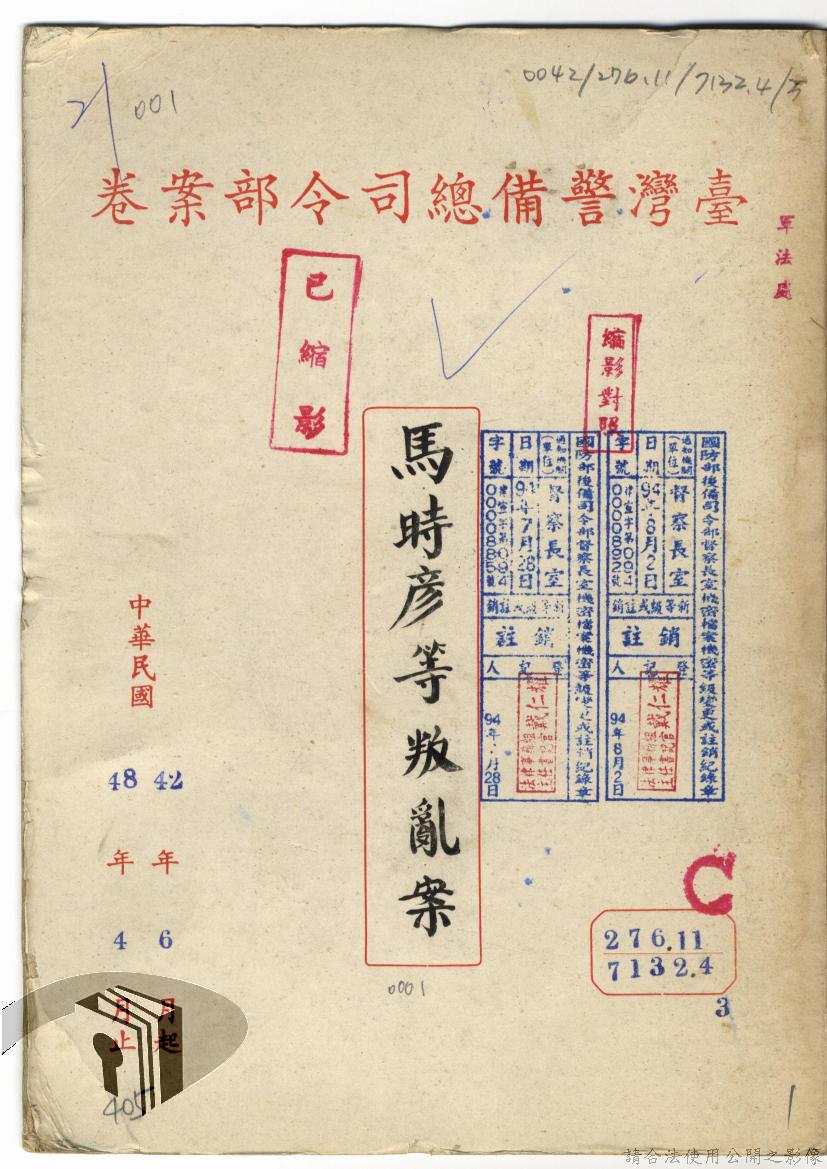 21
001
0042/276.11/7132.4/3
臺灣警備總司令部案卷
軍法處
已縮影
縮影對照
馬時彥等叛亂案
國防部後備司令部督察長室機密檔案機密等級變更或註銷紀錄章
通知機關(單位)
督察長室
日期
94年8月2日
字號
律宣字第094
0000892號
新等級或註銷
註銷
登記人
戴仁雄
94年8月2日
國防部後備司令部督察長室機密檔案機密等級變更或註銷紀錄章
通知機關(單位)
督察長室
日期
94年7月28日
字號
律宣字第094
0000885號
新等級或註銷
註銷
登記人
94年7月28日
中華民國
42年6月起
48年4月止
C
276.11
7132.4
3
0001
405
1
請合法使用公開之影像